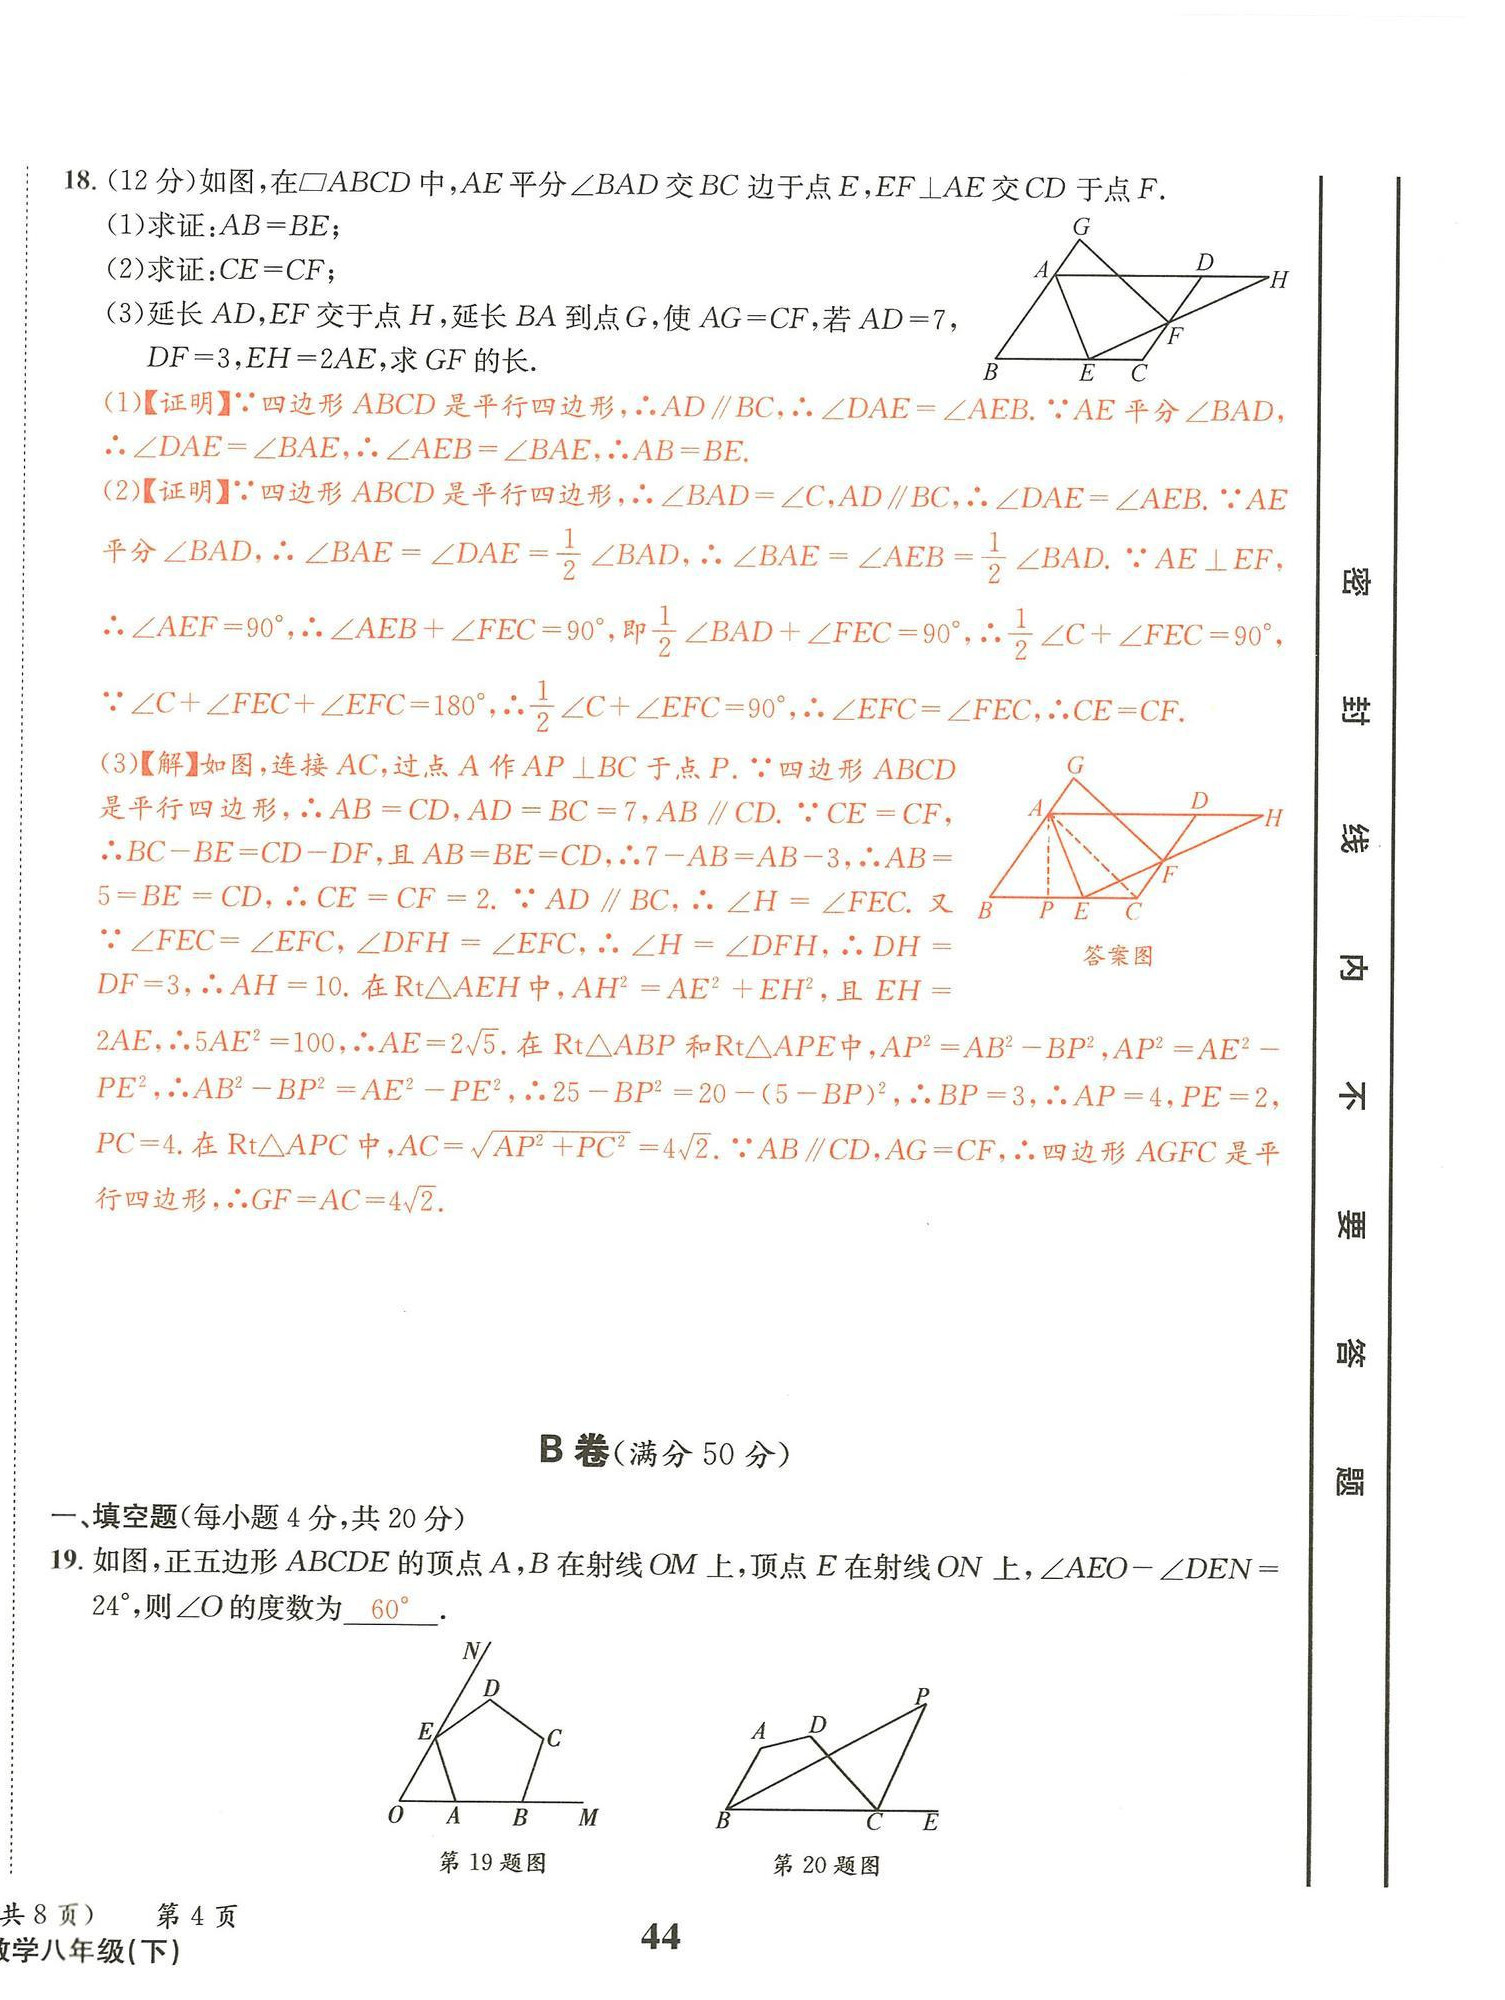 18. (12分)如图,在▱ABCD中,AE平分∠BAD交BC边于点E,EF⊥AE交CD于点F.
(1)求证:AB=BE;
(2)求证:CE=CF;
(3)延长AD,EF交于点H,延长BA到点G,使AG=CF,若AD=7,
DF=3,EH=2AE,求GF的长.
G
A
D
H
F
B
E
C
(1)【证明】∵四边形ABCD是平行四边形,∴AD∥BC,∴∠DAE=∠AEB.∵AE平分∠BAD,
∴∠DAE=∠BAE,∴∠AEB=∠BAE,∴AB=BE.
(2)【证明】∵四边形ABCD是平行四边形,∴∠BAD=∠C,AD∥BC,∴∠DAE=∠AEB.∵AE
平分∠BAD,∴∠BAE=∠DAE=1/2∠BAD,∴∠BAE=∠AEB=1/2∠BAD.∵AE⊥EF,
∴∠AEF=90°,∴∠AEB+∠FEC=90°,即1/2∠BAD+∠FEC=90°,∴1/2∠C+∠FEC=90°,
∵∠C+∠FEC+∠EFC=180°,∴1/2∠C+∠EFC=90°,∴∠EFC=∠FEC,∴CE=CF.
(3)【解】如图,连接AC,过点A作AP⊥BC于点P.∵四边形ABCD
是平行四边形,∴AB=CD,AD=BC=7,AB∥CD.∵CE=CF,
∴BC-BE=CD-DF,且AB=BE=CD,∴7-AB=AB-3,∴AB=
5=BE=CD,∴CE=CF=2.∵AD∥BC,∴∠H=∠FEC.又
∵∠FEC=∠EFC,∠DFH=∠EFC,∴∠H=∠DFH,∴DH=
DF=3,∴AH=10.在Rt△AEH中,AH²=AE²+EH²,且EH=
2AE,∴5AE²=100,∴AE=2√5.在Rt△ABP和Rt△APE中,AP²=AB²-BP²,AP²=AE²-
PE²,∴AB²-BP²=AE²-PE²,∴25-BP²=20-(5-BP)²,∴BP=3,∴AP=4,PE=2,
PC=4.在Rt△APC中,AC=√(AP²+PC²)=4√2.∵AB∥CD,AG=CF,∴四边形AGFC是平
行四边形,∴GF=AC=4√2.
G
A
D
H
F
B
P
E
C
答案图
B卷(满分50分)
一、填空题(每小题4分,共20分)
19. 如图,正五边形ABCDE的顶点A,B在射线OM上,顶点E在射线ON上,∠AEO-∠DEN=
24°,则∠O的度数为 60° .
N
D
E
C
O
A
B
M
第19题图
P
A
D
B
C
E
第20题图
共8页) 第4页
数学八年级(下)
44
密封线内不要答题